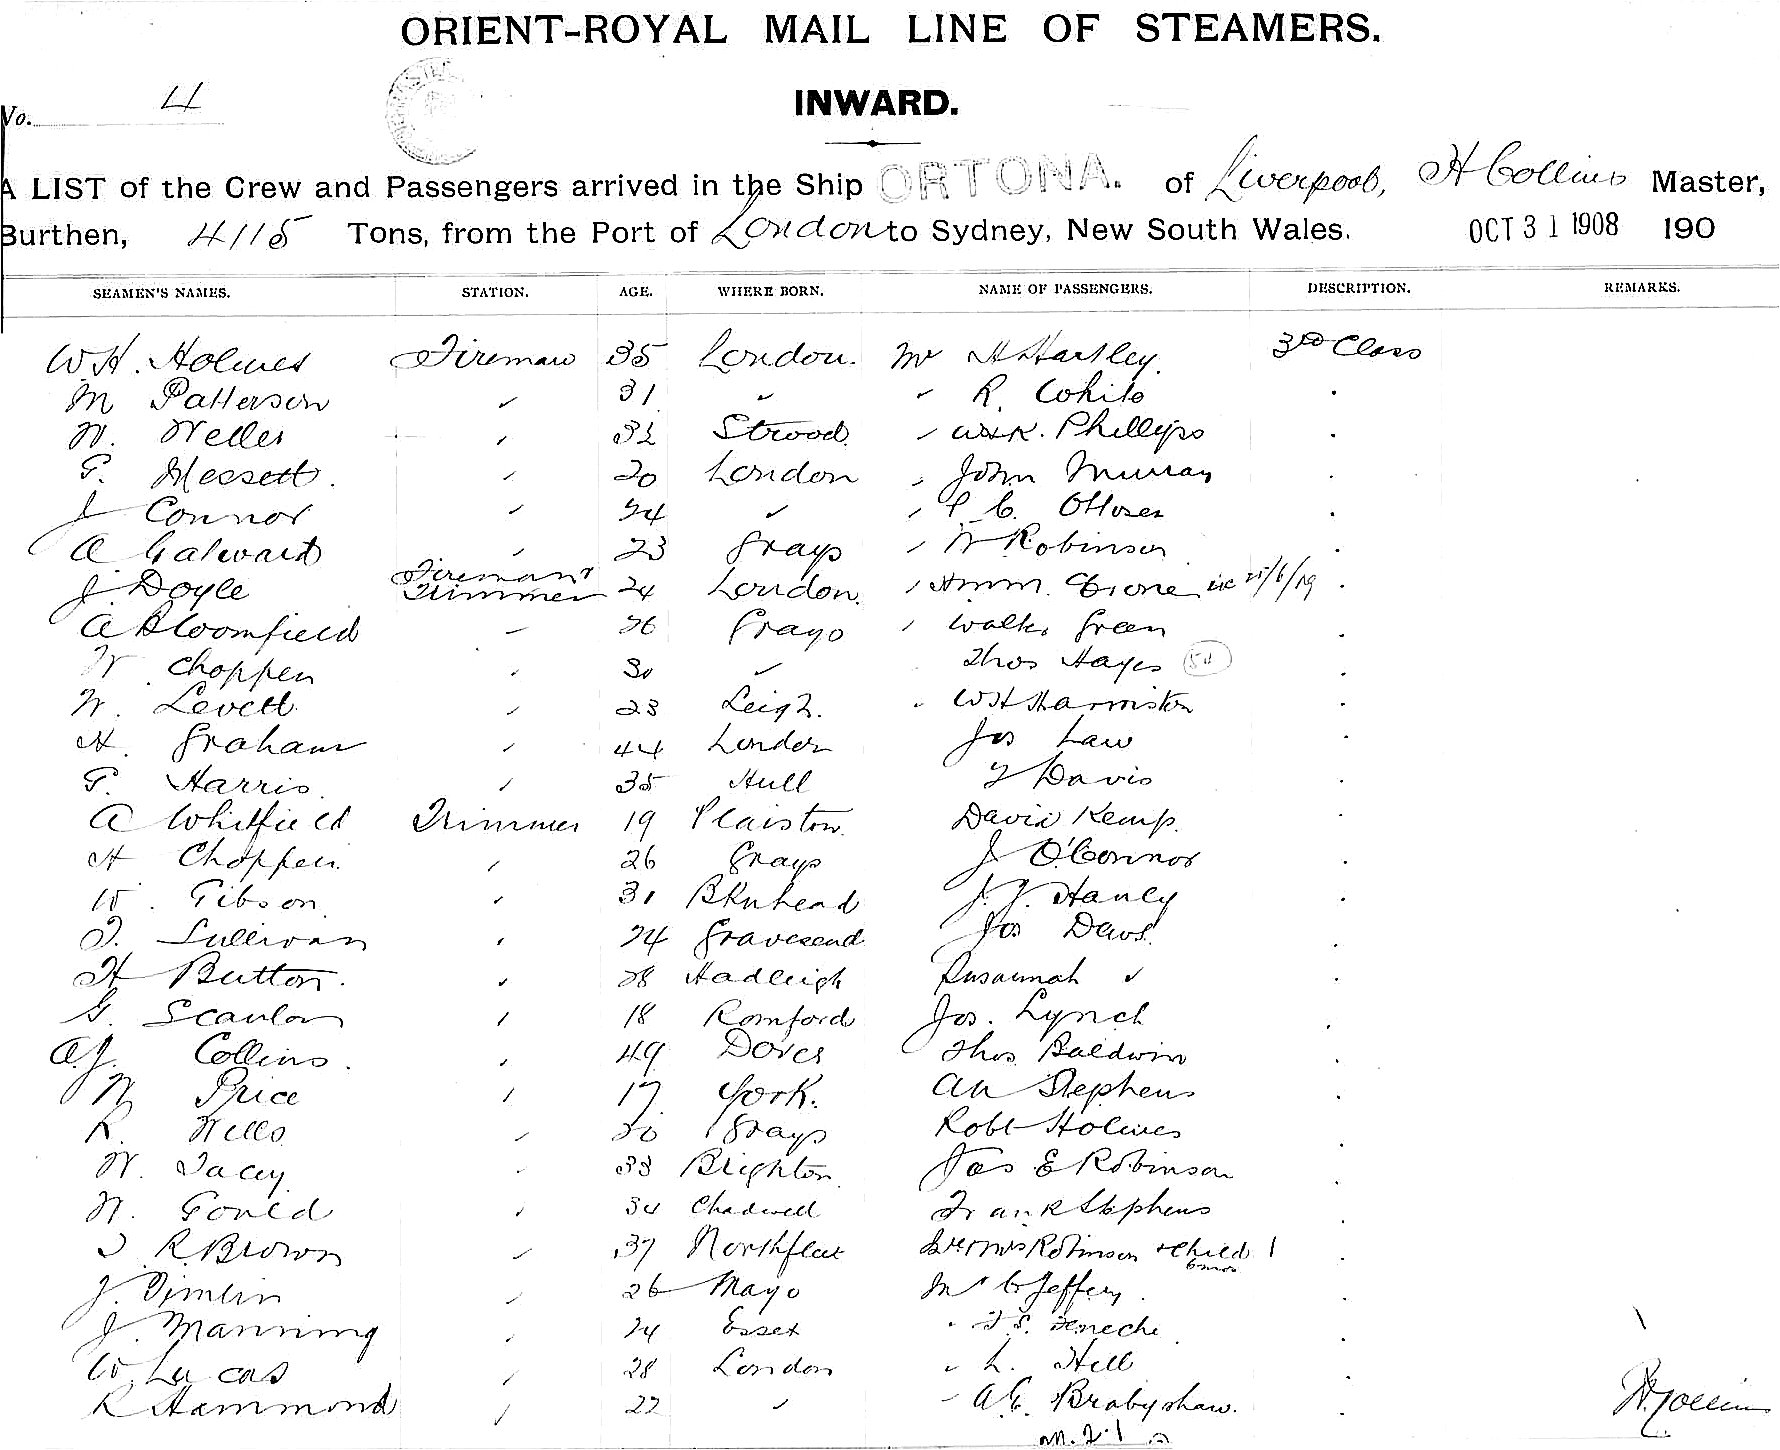 ORIENT-ROYAL MAIL LINE OF STEAMERS.
No. 4
INWARD.
A LIST of the Crew and Passengers arrived in the Ship ORTONA. of Liverpool, H Collins Master,
Burthen, 4115 Tons, from the Port of London to Sydney, New South Wales. OCT 31 1908 190
SEAMEN'S NAMES. STATION. AGE. WHERE BORN. NAME OF PASSENGERS. DESCRIPTION. REMARKS.
W H. Holmes Fireman 35 London. Mr H Hartley. 3rd Class
M Patterson 31 R. White
W. Weller 32 Strood. Phillips
G. Messett. 20 London John Murray
J Connor 24 C.
A Galward 23 Grays W Robinson
J. Doyle Fireman & Trimmer 24 London.
A Bloomfield 26 Grays Walter Green
W. Choppen 30 Thos Hayes
W. Levett 23 Leigh. W H Harmiston
H. Graham 44 London Jos Law
G. Harris. 35 Hull Davis
A Whitfield Trimmer 19 Plaistow. David Kemp.
H Choppen. 26 Grays J O'Connor
W. Gibson 31 B'Kenhead J. J. Hanly
T. Sullivan 24 Gravesend Jos
H Button. 28 Hadleigh Susannah ✓
G. Scanlon 18 Romford Jos. Lynch
A.J. Collins. 49 Dover Thos Baldwin
W Price 17. York. Stephens
R. Wells 30 Grays Robt Holmes
W. Tacey 33 Brighton Jas E Robinson
W. Gould 34 Chadwell Frank Stephens
T R Brown 37 Northfleet Robinson + child 1
J. Timlin 26 Mayo Mr C Jeffery.
J. Manning 24 Essex
W. Lucas 28 London L. Hill
R Hammond 22 A E. Brabyshaw.
H. Collins